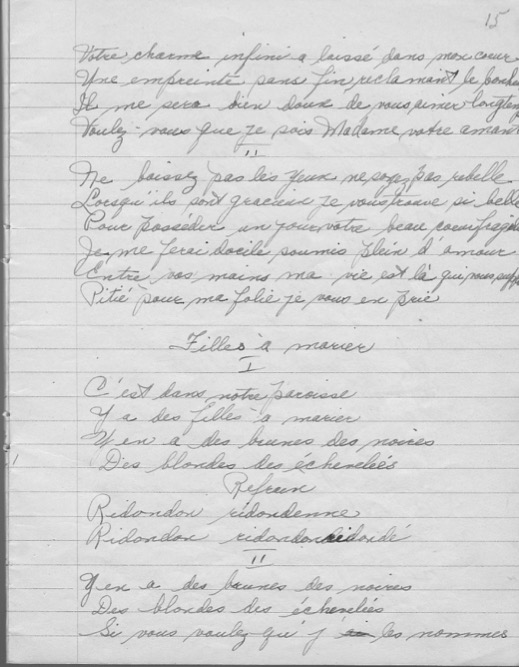 15
Votre charme infini a laissé dans mon coeur
Une empreinte sans fin reclamant le
Il me sera bien doux de vous aimer
Voulez-vous que je sois Madame votre amant
II
Ne baissez pas les yeux ne soyez pas rebelle
Lorsqu'ils sont gracieux je vous trouve si belle
Pour posséder un jour votre beau coeur
Je me ferai docile soumis plein d'amour
Entre vos mains ma vie est là qui vous
Pitié pour ma folie je vous en prie
Filles à marier
I
C'est dans notre paroisse
Y a des filles à marier
Y en a des brunes des noires
Des blondes des écheveliés
Refrain
Ridondon ridondenne
Ridondon ridondondidondé
II
Y en a des brunes des noires
Des blondes des écheveliés
Si vous voulez qu'j' les nommes